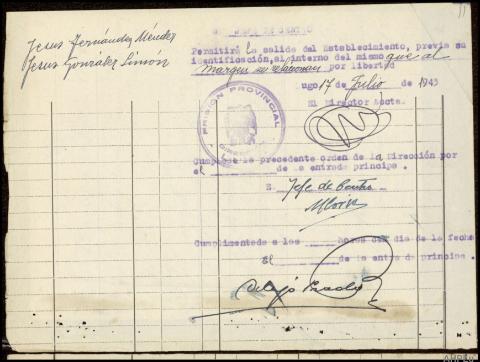 Jesus Fernández Méndez
Jesus González Simón
JEFE DE CENTRO
Permitirá la salida del Establecimiento, previa su
identificación, al interno del mismo que al
margen se relacionan por libertad
Lugo 17 de Julio de 1943
El Director Accta.
PRISION PROVINCIAL
Cumplase la precedente orden de la Dirección por
el de la entrada principa .
E. Jefe de Centro
Cumplimentado a las horas del día de la fecha
El de la entrada principa .